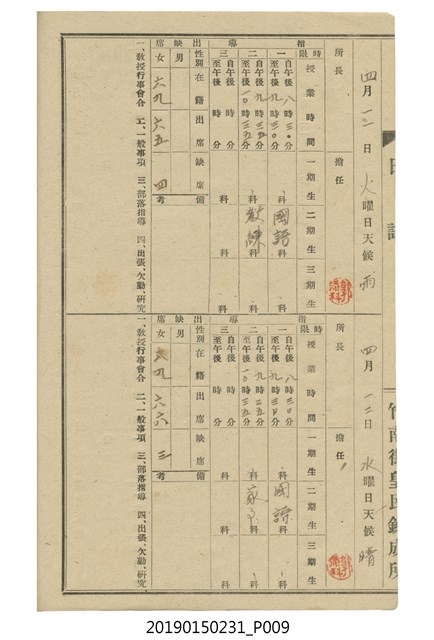 四月一二日火曜日天候雨
所長
擔任
指導
時限 授業時間 一期生 二期生 三期生
一 自午後八時三〇分 至午後九時三〇分 科 國語科 科
二 自午後九時三五分 至午後一〇時三五分 科 科 科
三 自午後 時 分 至午後 時 分 科 科 科
出缺席
性別 在籍 出席 缺席 備考
男
女 六九 六五 四
一、教授行事會合 二、一般事項 三、部落指導 四、出張、欠勤、研究
竹南街皇民鍊成所
四月一三日水曜日天候晴
所長
擔任
指導
時限 授業時間 一期生 二期生 三期生
一 自午後八時三〇分 至午後九時三〇分 科 國語科 科
二 自午後九時三五分 至午後一〇時三五分 科 科 科
三 自午後 時 分 至午後 時 分 科 科 科
出缺席
性別 在籍 出席 缺席 備考
男
女 六九 六六 三
一、教授行事會合 二、一般事項 三、部落指導 四、出張、欠勤、研究
20190150231_P009